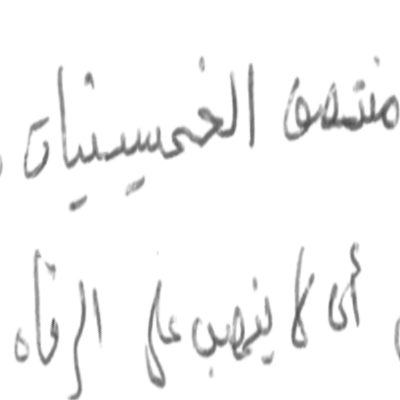 منتصف الخمسينيات
أن لا ينصب على الرفاه